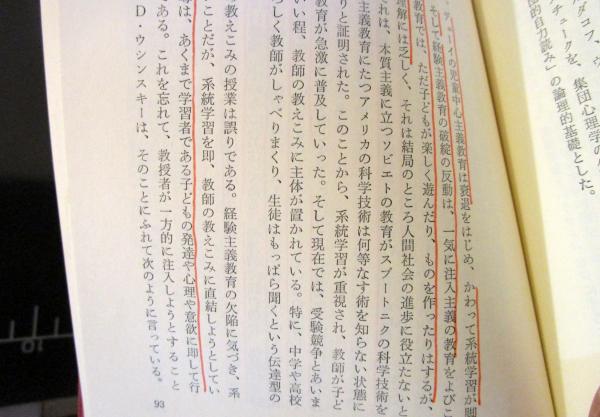 ・デューイの児童中心主義教育は衰退をはじめ、かわって系統学習が脚
そして経験主義教育の破綻の反動は、一気に注入主義の教育をよびこ
教育では、ただ子どもが楽しく遊んだり、ものを作ったりはするが
理解には乏しく、それは結局のところ人間社会の進歩に役立たないと
これは、本質主義に立つソビエトの教育がスプートニクの科学技術を
主義教育にたつアメリカの科学技術は何等なす術を知らない状態に
りと証明された。このことから、系統学習が重視され、教師が子ど
教育が急激に普及していった。そして現在では、受験競争とあいま
いい程、教師の教えこみに主体が置かれている。特に、中学や高校
らしく教師がしゃべりまくり、生徒はもっぱら聞くという伝達型の
教えこみの授業は誤りである。経験主義教育の欠陥に気づき、系
ことだが、系統学習を即、教師の教えこみに直結しようとしてい
は、あくまで学習者である子どもの発達や心理や意欲に即して行
ある。これを忘れて、教授者が一方的に注入しようとすること
D・ウシンスキーは、そのことにふれて次のように言っている。
93
ダコフ、ウ
チュークを、集団心理学の
的自力読み」の論理的基礎とした。